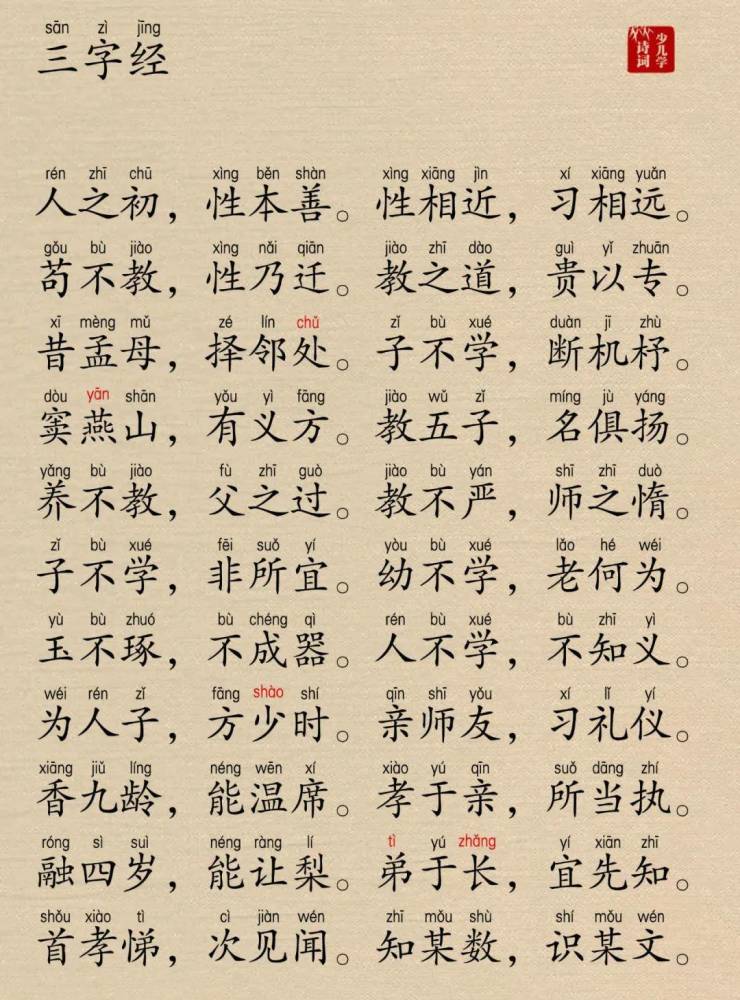 sān zì jīng
三字经
少儿学
诗词
rén zhī chū xìng běn shàn xìng xiāng jìn xí xiāng yuǎn
人之初，性本善。性相近，习相远。
gǒu bù jiào xìng nǎi qiān jiào zhī dào guì yǐ zhuān
苟不教，性乃迁。教之道，贵以专。
xī mèng mǔ zé lín chǔ zǐ bù xué duàn jī zhù
昔孟母，择邻处。子不学，断机杼。
dòu yān shān yǒu yì fāng jiào wǔ zǐ míng jù yáng
窦燕山，有义方。教五子，名俱扬。
yǎng bù jiào fù zhī guò jiào bù yán shī zhī duò
养不教，父之过。教不严，师之惰。
zǐ bù xué fēi suǒ yí yòu bù xué lǎo hé wéi
子不学，非所宜。幼不学，老何为。
yù bù zhuó bù chéng qì rén bù xué bù zhī yì
玉不琢，不成器。人不学，不知义。
wéi rén zǐ fāng shào shí qīn shī yǒu xí lǐ yí
为人子，方少时。亲师友，习礼仪。
xiāng jiǔ líng néng wēn xí xiào yú qīn suǒ dāng zhí
香九龄，能温席。孝于亲，所当执。
róng sì suì néng ràng lí tì yú zhǎng yí xiān zhī
融四岁，能让梨。弟于长，宜先知。
shǒu xiào tì cì jiàn wén zhī mǒu shù shí mǒu wén
首孝悌，次见闻。知某数，识某文。